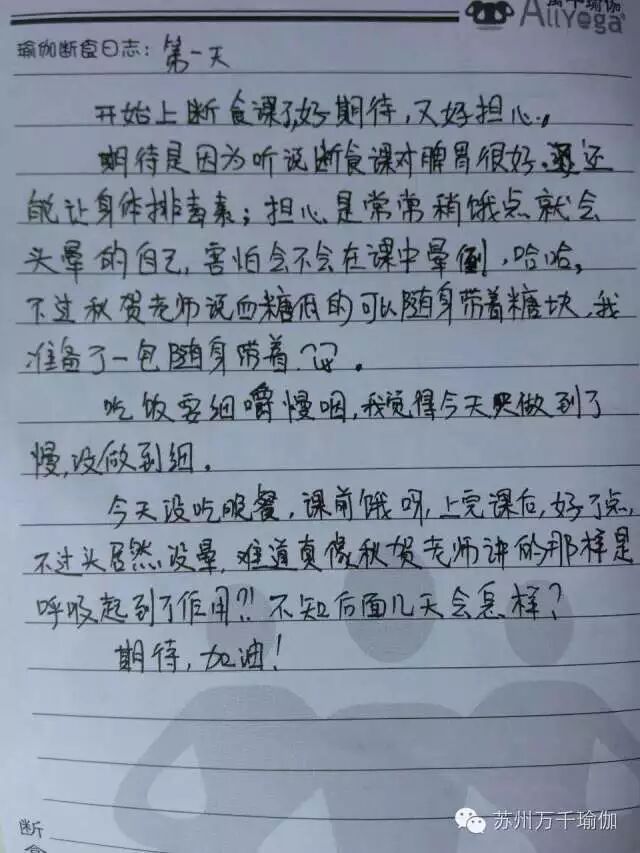 万千瑜伽
AllYoga
瑜伽断食日志：第一天
开始上断食课了，好期待，又好担心。
期待是因为听说断食课对脾胃很好，还
能让身体排毒素；担心是常常稍饿点就会
头晕的自己，害怕会不会在课中晕倒，哈哈。
不过秋贺老师说血糖低的可以随身带着糖块，我
准备了一包随身带着。
吃饭要细嚼慢咽，我觉得今天只做到了
慢，没做到细。
今天没吃晚餐，课前饿呀，上完课后，好了点，
不过头居然没晕，难道真像秋贺老师讲的那样是
呼吸起到了作用?!不知后面几天会怎样?
期待，加油!
断
食
苏州万千瑜伽